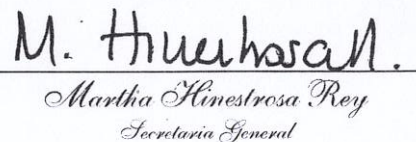 M. Hinestrosa R.
Martha Hinestrosa Rey
Secretaria General